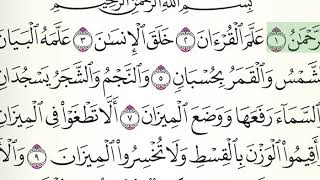 بِسْمِ ٱللَّهِ ٱلرَّحْمَٰنِ ٱلرَّحِيمِ
رَّحْمَٰنُ ١ عَلَّمَ ٱلْقُرْءَانَ ٢ خَلَقَ ٱلْإِنسَٰنَ ٣ عَلَّمَهُ ٱلْبَيَانَ
لشَّمْسُ وَٱلْقَمَرُ بِحُسْبَانٍ ٥ وَٱلنَّجْمُ وَٱلشَّجَرُ يَسْجُدَانِ
ٱلسَّمَآءَ رَفَعَهَا وَوَضَعَ ٱلْمِيزَانَ ٧ أَلَّا تَطْغَوْا۟ فِى ٱلْمِيزَانِ
أَقِيمُوا۟ ٱلْوَزْنَ بِٱلْقِسْطِ وَلَا تُخْسِرُوا۟ ٱلْمِيزَانَ ٩ وَٱلْأَ